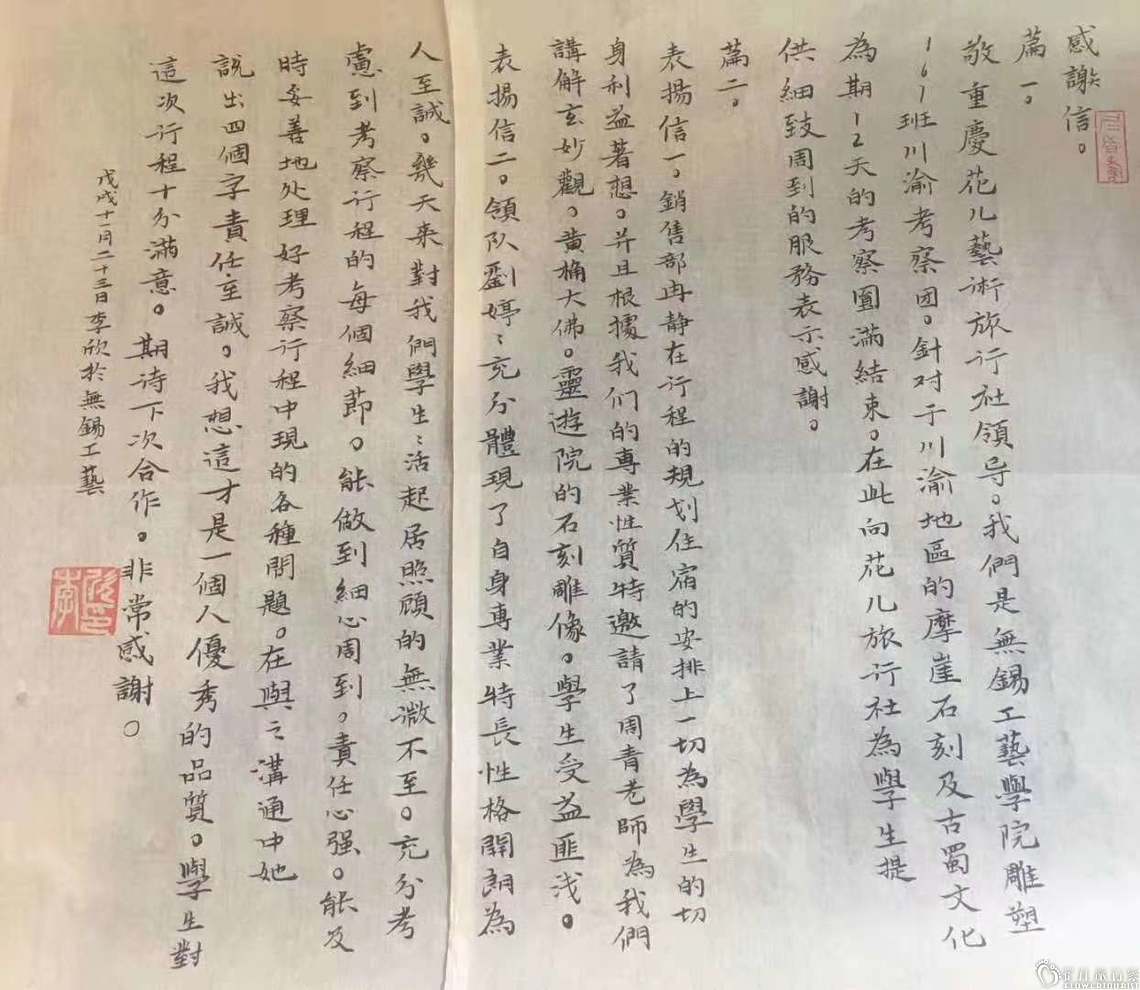 感謝信。
篇一。
敬重慶花儿藝術旅行社領导。我們是無錫工藝學院雕塑
161班川渝考察团。針对于川渝地區的摩崖石刻及古蜀文化
為期12天的考察圓滿结束。在此向花儿旅行社為學生提
供細致周到的服務表示感謝。
篇二。
表揚信一。銷售部冉静在行程的規划住宿的安排上一切為學生的切
身利益著想。并且根據我们的專業性質特邀請了周青老師為我們
講解玄妙觀。黄桷大佛。靈遊院的石刻雕像。學生受益匪浅。
表揚信二。領队劉婷：充分體現了自身專業特長性格開朗為
人至誠。幾天来對我們學生：活起居照顾的無微不至。充分考
慮到考察行程的每個細節。能做到細心周到。責任心强。能及
時妥善地处理好考察行程中現的各種問題。在與之溝通中她
説出四個字責任至誠。我想這才是一個人優秀的品質。學生對
這次行程十分滿意。期待下次合作。非常感謝。
戊戌十一月二十三日李欣於無錫工藝